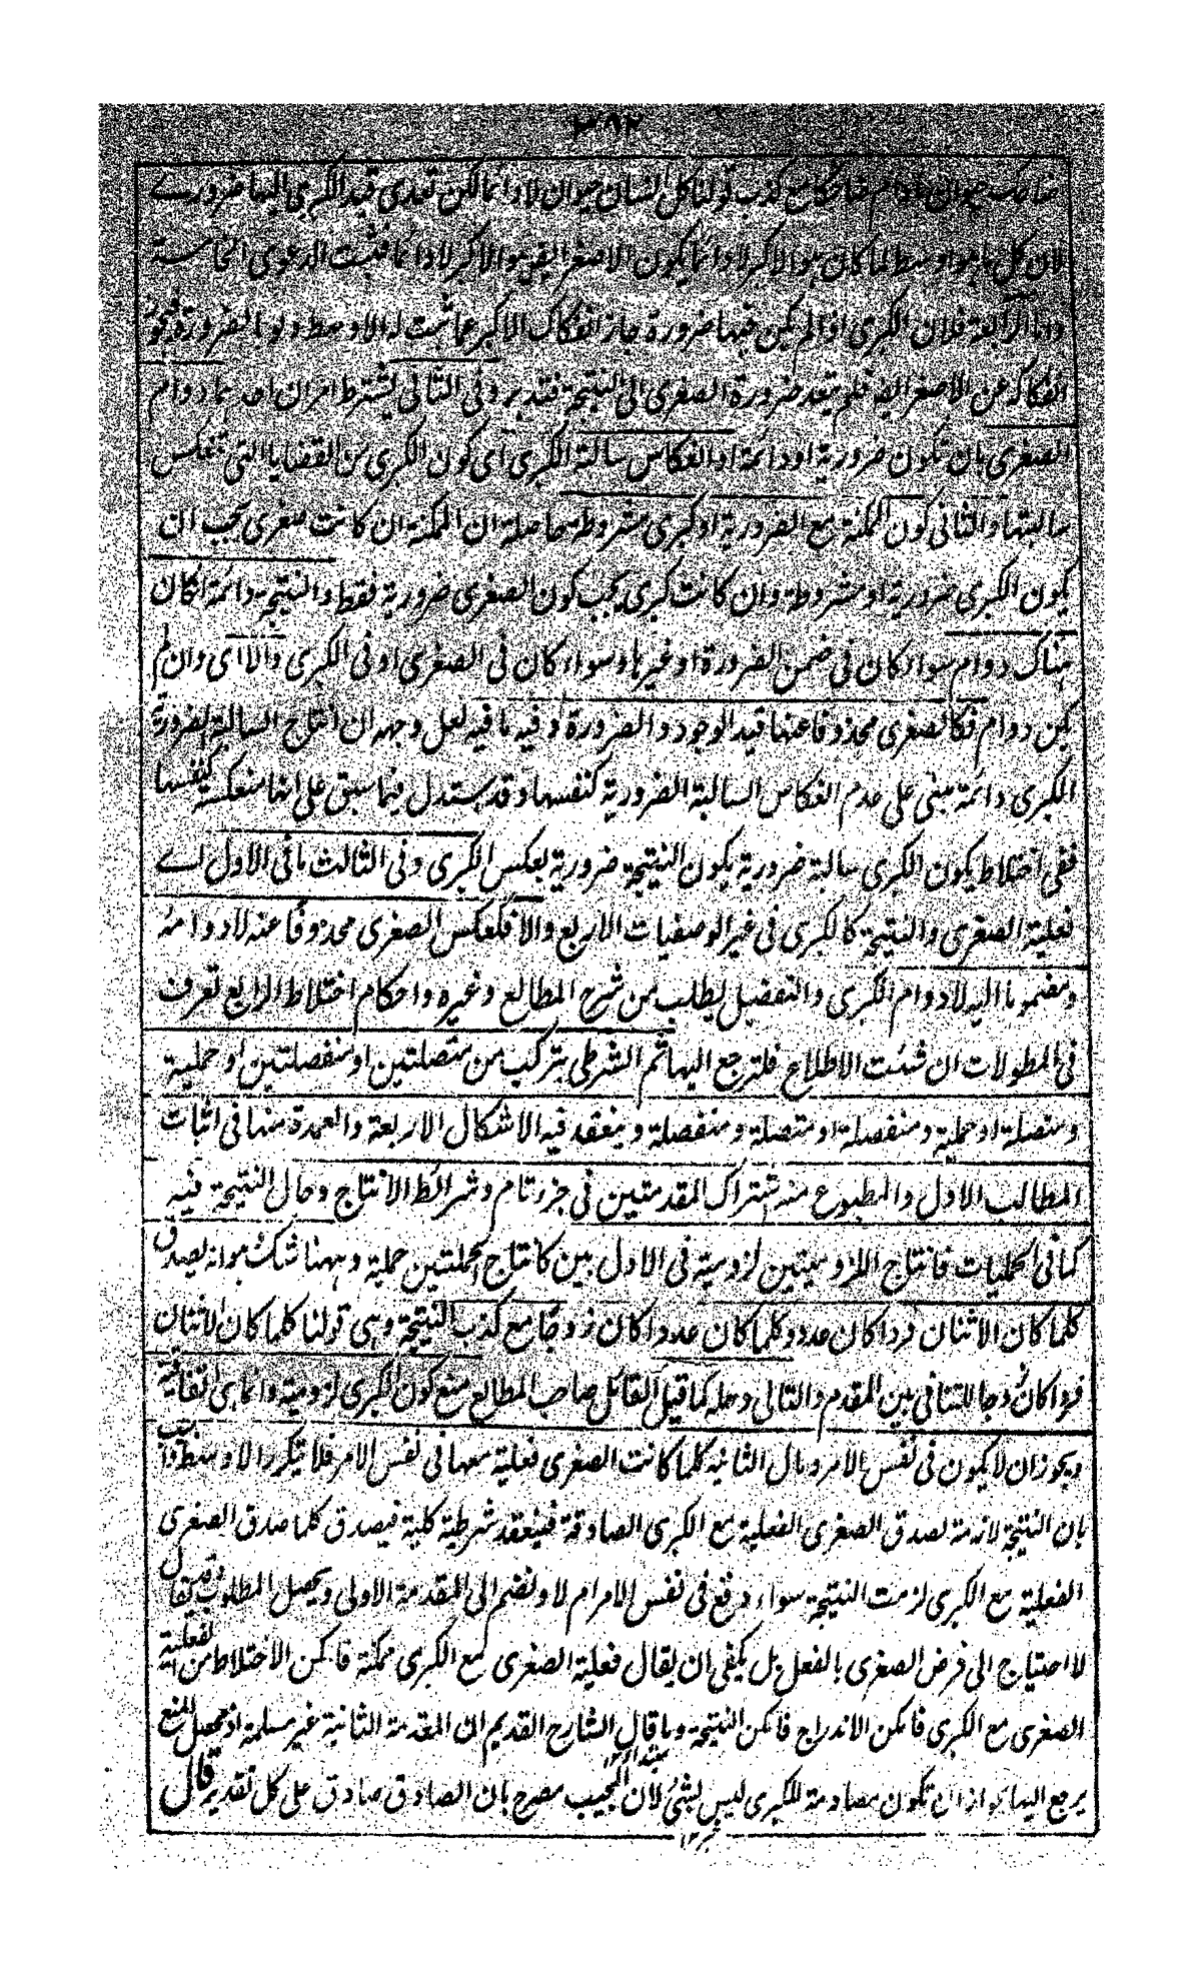 ٣٨٢
ضاحك حيوان مادام ضاحكا مع كذب قولنا كل انسان حيوان لادائما لكن تعدى قيد الكبرى اليها ضرورے
لان كل ما هو اوسط لما كان هو الاكبر لا دائما يكون الاصغر ايضا هو الاكبر لا دائما فثبت الدعوى الخامسة
واما الرابعة فلان الكبرى اذا لم يكن فيها ضرورة جاز انفكاك الاكبر عما ثبت له الاوسط ولو بالضرورة فيجوز
انفكاكه عن الاصغر ايضا فلم يتعد ضرورة الصغرى الى النتيجة فتدبر وفى الثانى يشترط امران احدهما دوام
الصغرى بان تكون ضرورية او دائمة او انعكاس سالبة الكبرى اى كون الكبرى من القضايا التى تنعكس
سالبتها والثانى كون الممكنة مع الضرورية او كبرى مشروطة حاصله ان الممكنة ان كانت صغرى يجب ان
يكون الكبرى ضرورية او مشروطة وان كانت كبرى يجب كون الصغرى ضرورية فقط والنتيجة دائمة انكان
هناك دوام سواء كان فى ضمن الضرورة او غيرها وسواء كان فى الصغرى او فى الكبرى والا اى وان لم
يكن دوام فكالصغرى محذوفا عنها قيد الوجود والضرورة وفيه ما فيه لعل وجهه ان انتاج السالبة الضرورة
الكبرى دائمة مبنى على عدم انعكاس السالبة الضرورية كنفسها وقد يستدل فيما سبق على انها منعكسة كنفسها
ففى اختلاط يكون الكبرى سالبة ضرورية يكون النتيجة ضرورية بعكس الكبرى وفى الثالث مافى الاول اے
فعلية الصغرى والنتيجة كالكبرى فى غير الوصفيات الاربع والا فكعكس الصغرى محذوفا عنه لادوامه
ومضموما اليه لادوام الكبرى والتفصيل يطلب من شرح المطالع وغيره واحكام اختلاط الرابع تعرف
فى المطولات ان شئت الاطلاع فلترجع اليها ثم الشرطى يتركب من متصلتين او منفصلتين او حملية
ومتصلة او حملية ومنفصلة او متصلة ومنفصلة وينعقد فيه الاشكال الاربعة والعمدة منها فى اثبات
المطالب الاول والمطبوع منه اشتراك المقدمتين فى جزء تام وشرائط الانتاج وحال النتيجة فيه
كما فى الحمليات فانتاج اللزوميتين لزومية فى الاول بين كانتاج الحمليتين حملية وههنا شك هو انه يصدق
كلما كان الاثنان فردا كان عددا وكلما كان عددا كان زوجا مع كذب النتيجة وهى قولنا كلما كان الاثنان
فردا كان زوجا للتنافى بين المقدم والتالى وحله كما قيل القائل صاحب المطالع منع كون الكبرى لزومية وانما هى اتفاقية
ويجوز ان لا يكون فى نفس الامر ومال الثانية كلما كانت الصغرى فعلية معها فى نفس الامر فلا يتكرر الاوسط واجيب
بان النتيجة لازمة لصدق الصغرى الفعلية مع الكبرى الصادقة فينعقد شرطية كلية فيصدق كلما صدق الصغرى
الفعلية مع الكبرى لزمت النتيجة سواء وقع فى نفس الامر ام لا ونضم الى المقدمة الاولى ويحصل المطلوب وقيل يقال
لا احتياج الى فرض الصغرى بالفعل بل يكفى ان يقال فعلية الصغرى مع الكبرى ممكنة فامكن الاختلاط من الفعلية
الصغرى مع الكبرى فامكن الاندراج فامكن النتيجة وما قال الشارح القديم ان المقدمة الثانية غير مسلمة اذ محصل المنع
يرجع اليها لجواز ان تكون مصادمة للكبرى ليس بشئ لان المجيب مصرح بان الصادق صادق على كل تقدير قال